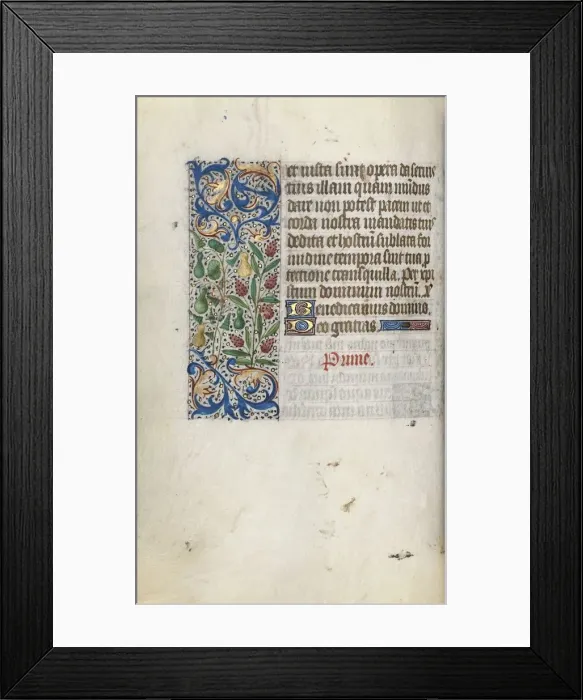 et iusta sunt opera da seruis
tuis illam quam mūdus
dare non potest pacem ut et
corda nostra mandatis tuis
dedita et hostiū sublata for
midine tempora sint tua p
tectione tranquilla. Per xpi
stum dominum nostrū. R
Benedicamus domino.
Deo gratias
Prime.